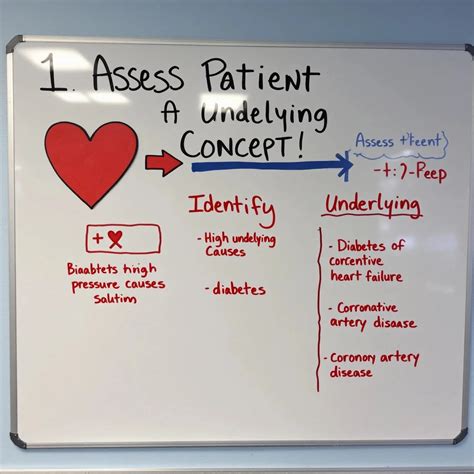 1. Assess Patient
A Undelying
Concept!
Assess +teent
-+:7-Peep
Identify
- High undelying
causes
- diabetes
Underlying
- Diabetes of
corcentive
heart failure
- Corronative
artery disaase
- Coronony artery
disease
+
Biaabtets hrigh
pressure causes
salutim